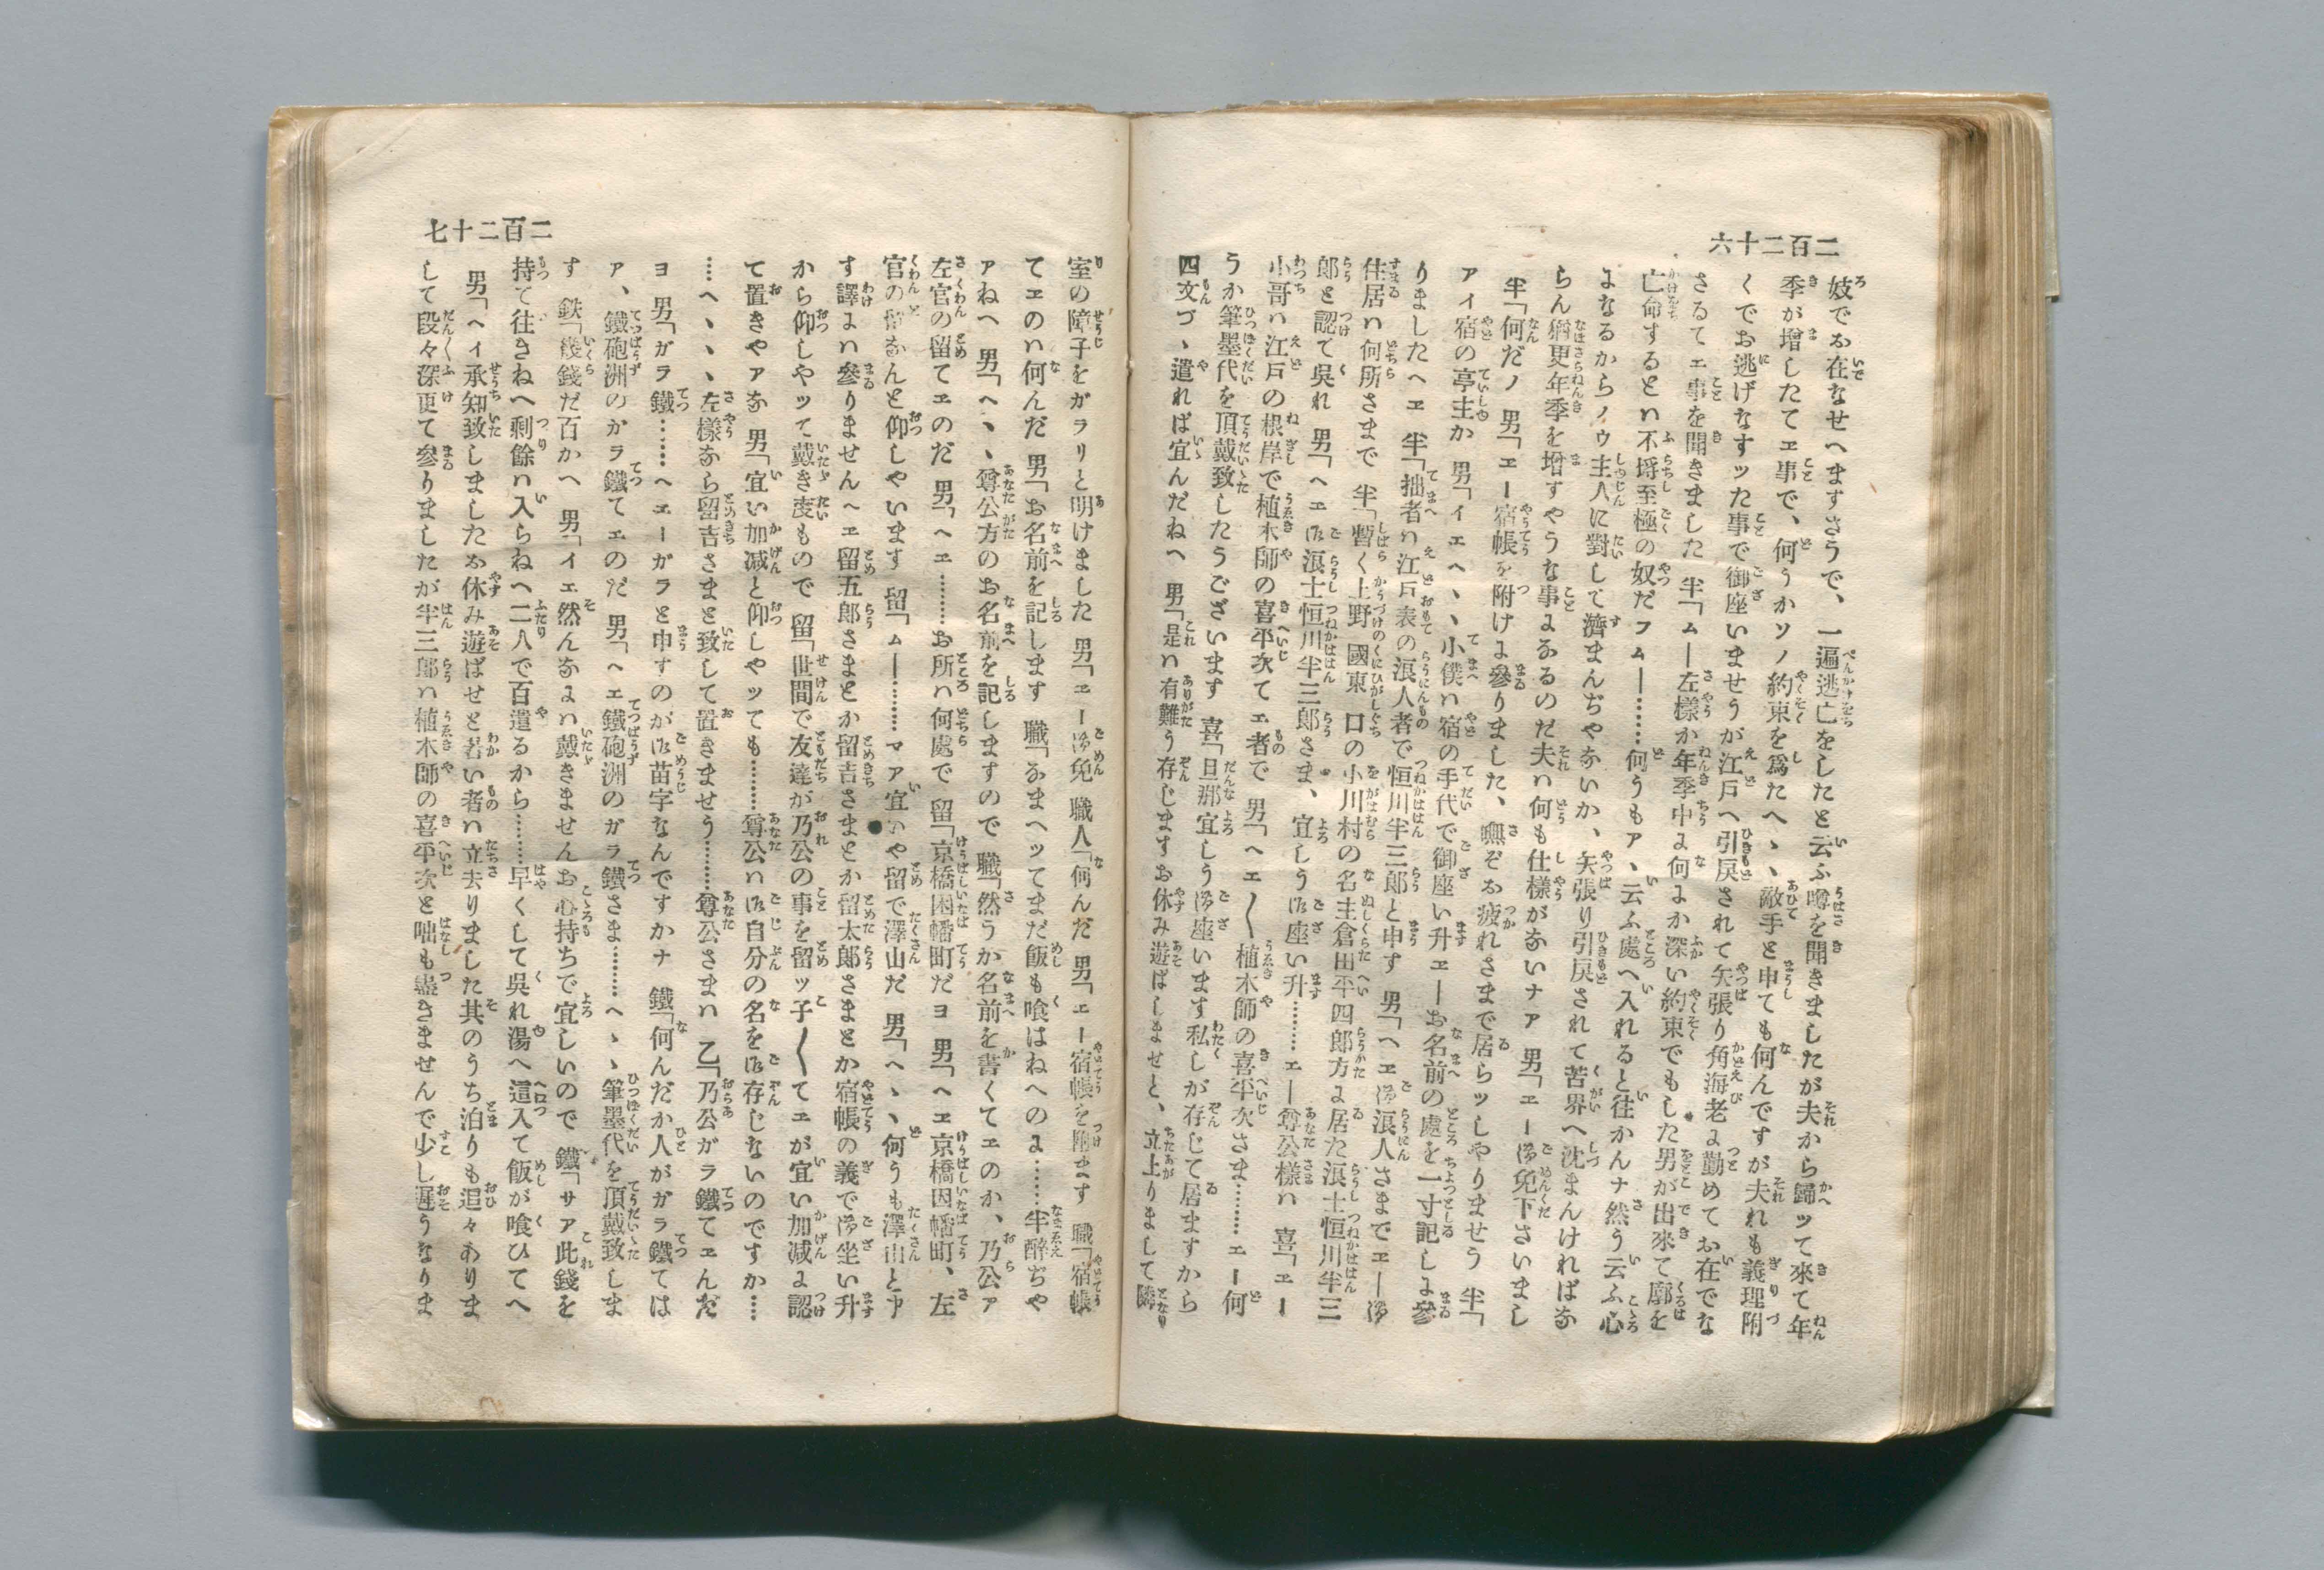 二百二十六
妓でお在なせへますさうで、一遍逃亡をしたと云ふ噂を聞きましたが夫から歸ッて來て年
季が增したてエ事で、何うかソノ約束を爲たへヽヽ敵手と申ても何んですが夫れも義理附
くでお逃げなすッた事で御座いませうが江戸へ引戻されて矢張り角海老に勤めてお在でな
さるてエ事を聞きました 半「ムー左樣か年季中に何にか深い約束でもした男が出來て廓を
亡命するとハ不埒至極の奴だフムー……何うもアヽ云ふ處へ入れると往かんナ然う云ふ心
になるからノウ主人に對して濟まんぢやないか、矢張り引戻されて苦界へ沈まんければな
らん猶更年季を增すやうな事になるのだ夫ハ何も仕樣がないナア 男「エー御免下さいまし
半「何だノ 男「エー宿帳を附けに參りました、嘸ぞお疲れさまで居らッしやりませう 半「
アイ宿の亭主か 男「イエヘヽヽ小僕ハ宿の手代で御座い升エーお名前の處を一寸記しに參
りましたへエ 半「拙者ハ江戸表の浪人者で恒川半三郎と申す 男「ヘエ御浪人さまでエー御
住居ハ何所さまで 半「暫く上野 國東 口の小川村の名主倉田平四郎方に居た浪士恒川半三
郎と認て吳れ 男「ヘエ御浪士恒川半三郎さま、宜しう御座い升………エー尊公樣ハ 喜「エー
小哥ハ江戸の根岸で植木師の喜平次てエ者で 男「ヘエ〱植木師の喜平次さま………エー何
うか筆墨代を頂戴致したうございます 喜「旦那宜しう御座います私しが存じて居ますから
四文づヽ遣れば宜んだねへ 男「是ハ有難う存じますお休み遊ばしませと、立上りまして隣
二百二十七
室の障子をガラリと明けました 男「エー御免 職人「何んだ 男「エー宿帳を附ます 職「宿帳
てエのハ何んだ 男「お名前を記します 職「なまヘッてまだ飯も喰はねへのに……生醉ぢや
アねへ 男「ヘヽヽ尊公方のお名前を記しますので 職「然うか名前を書くてエのか、乃公ア
左官の留てエのだ 男「ヘエ………お所ハ何處で 留「京橋因幡町だヨ 男「ヘエ京橋因幡町、左
官の留なんと仰しやいます 留「ムー………マア宜いや留で澤山だ 男「ヘヽヽ何うも澤山と申
す譯にハ參りませんへエ留五郎さまとか留吉さまとか留太郎さまとか宿帳の義で御坐い升
から仰しやッて戴き度いもので 留「世間で友達が乃公の事を留ッ子〱てエが宜い加減に認
て置きやアな 男「宜い加减と仰しやッても………尊公ハ御自分の名を御存じないのですか…
…ヘヽヽヽ左樣なら留吉さまと致して置きませう………尊公さまハ 乙「乃公ガラ鐵てエんだ
ヨ 男「ガラ鐵……ヘエーガラと申すのが御苗字なんですかナ 鐵「何んだか人がガラ鐵ては
ア、鐵砲洲のガラ鐵てエのだ 男「ヘエ鐵砲洲のガラ鐵さま………ヘヽヽ筆墨代を頂戴致しま
す 鉄「幾錢だ百かへ 男「イエ然んなにハ戴きませんお心持ちで宜しいので 鐵「サア此錢を
持て往きねへ剩餘ハ入らねへ二人で百遣るから………早くして吳れ湯へ這入て飯が喰ひてへ
男「ヘイ承知致しましたお休み遊ばせと若い者ハ立去りました其のうち泊りも追々ありま
して段々深更て參りましたが半三郎ハ植木師の喜平次と咄も盡きませんで少し遲うなりま